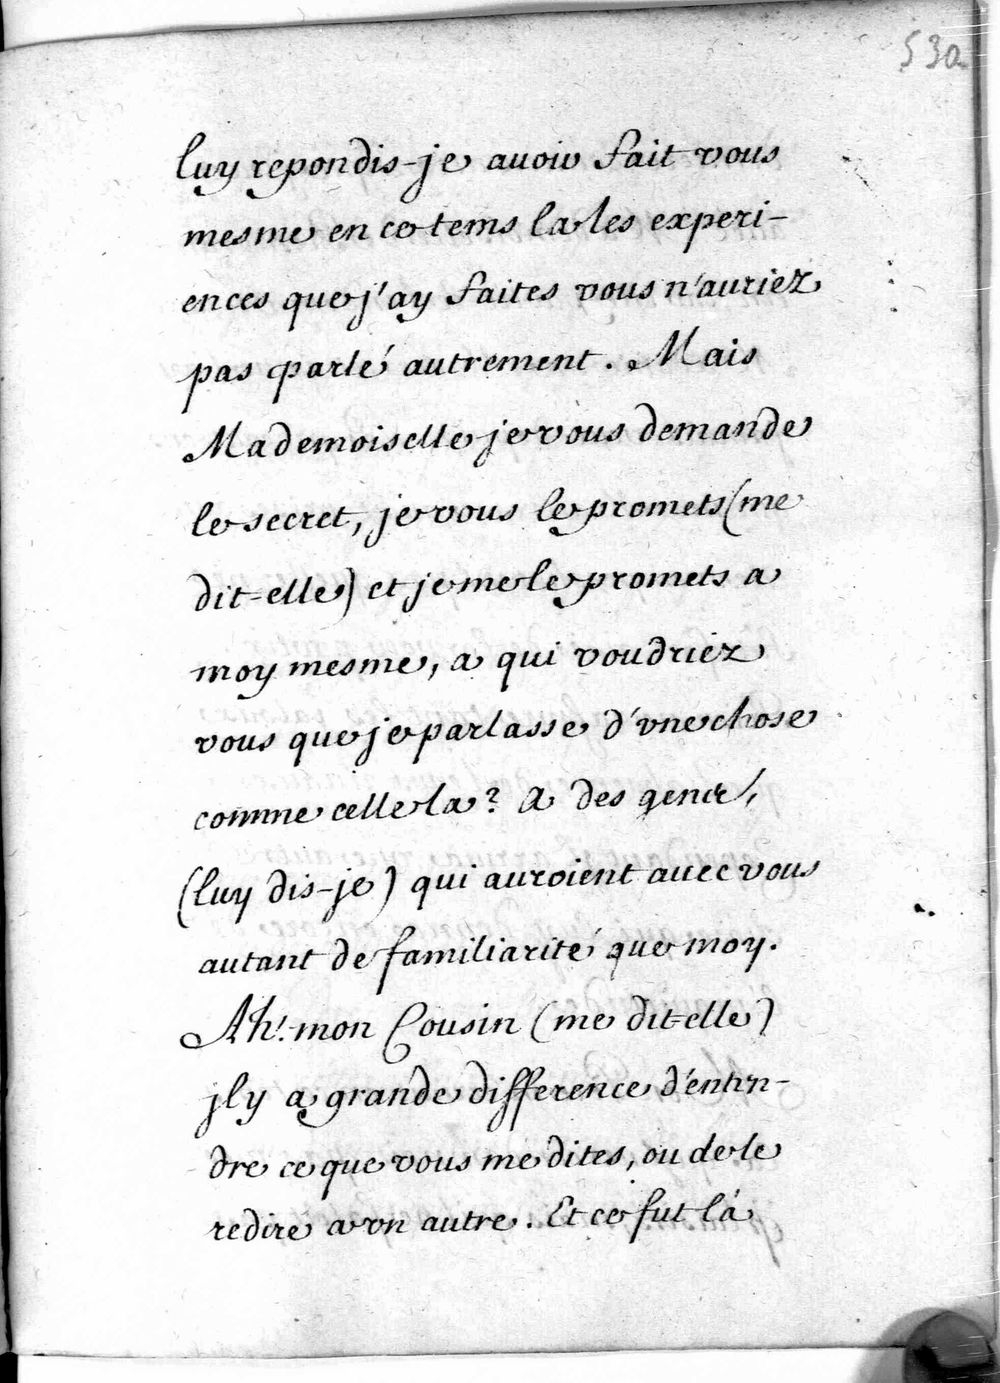 530
luy repondis-je avoir fait vous
mesme en ce tems la les experi-
ences que j'ay faites vous n'auriez
pas parlé autrement. Mais
Mademoiselle je vous demande
le secret, je vous le promets (me
dit-elle) et je me le promets a
moy mesme, a qui voudriez
vous que je parlasse d'vne chose
comme celle la? A des gens,
(luy dis-je) qui auroient avec vous
autant de familiarité que moy.
Ah! mon Cousin (me dit-elle)
jl y a grande difference d'enten-
dre ce que vous me dites, ou de le
redire a vn autre. Et ce fut là